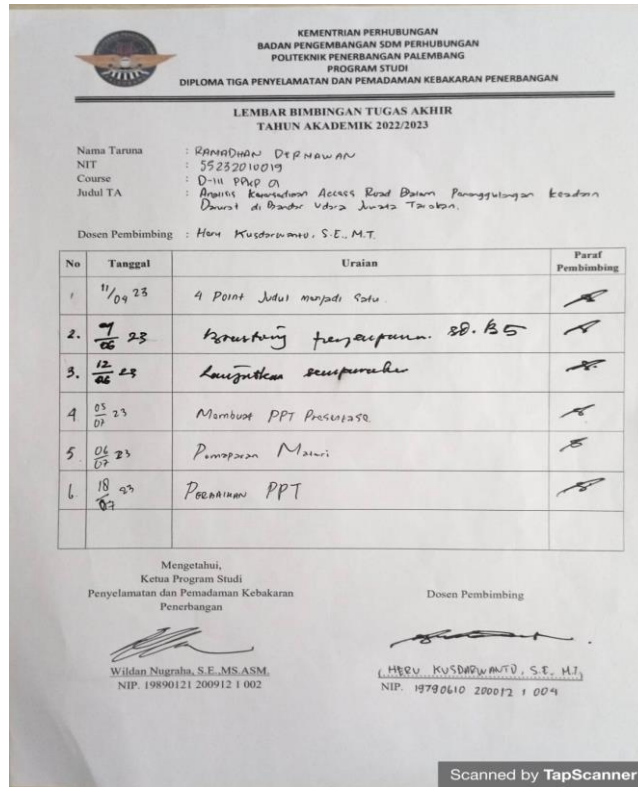 KEMENTRIAN PERHUBUNGAN
BADAN PENGEMBANGAN SDM PERHUBUNGAN
POLITEKNIK PENERBANGAN PALEMBANG
PROGRAM STUDI
DIPLOMA TIGA PENYELAMATAN DAN PEMADAMAN KEBAKARAN PENERBANGAN
LEMBAR BIMBINGAN TUGAS AKHIR
TAHUN AKADEMIK 2022/2023
Nama Taruna : RAMADHAN DERNAWAN
NIT : 55232010019
Course : D-III PPKP
Judul TA : Analisis Access Road Dalam Penanggulangan Keadaan
Darurat di Bandar Udara Juwata Tarakan.
Dosen Pembimbing : Heru Kusdarwanto, S.E., M.T.
No Tanggal Uraian Paraf Pembimbing
1 11/04 23 4 Point Judul menjadi satu.
2. 23
3. 12/06 23 Lanjutkan
4. 05/07 23 Membuat PPT Presentase
5. 06/07 23 Pemaparan Materi
6. 18/07 23 PERBAIKAN PPT
Mengetahui,
Ketua Program Studi
Penyelamatan dan Pemadaman Kebakaran
Penerbangan
Wildan Nugraha, S.E.,MS.ASM.
NIP. 19890121 200912 1 002
Dosen Pembimbing
(HERU KUSDARWANTO, S.E, M.T)
NIP. 19790610 200012 1 004
Scanned by TapScanner